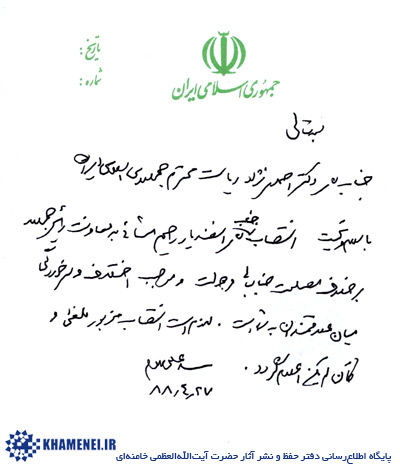 جمهوری اسلامی ایران
تاریخ:
شماره:
بسمه تعالی
جناب آقای دکتر احمدی نژاد ریاست محترم جمهوری اسلامی ایران
با سلام و تحیت انتصاب جناب آقای اسفندیار رحیم مشائی به معاونت رئیس جمهور
بر خلاف مصلحت جنابعالی و دولت و موجب اختلاف و سرخوردگی
میان علاقمندان به شما است. لازم است انتصاب مزبور ملغی و
کان لم یکن اعلام گردد.
سید علی خامنه‌ای
۸۸,۴,۲۷
KHAMENEI.IR
پایگاه اطلاع‌رسانی دفتر حفظ و نشر آثار حضرت آیت‌الله‌العظمی خامنه‌ای